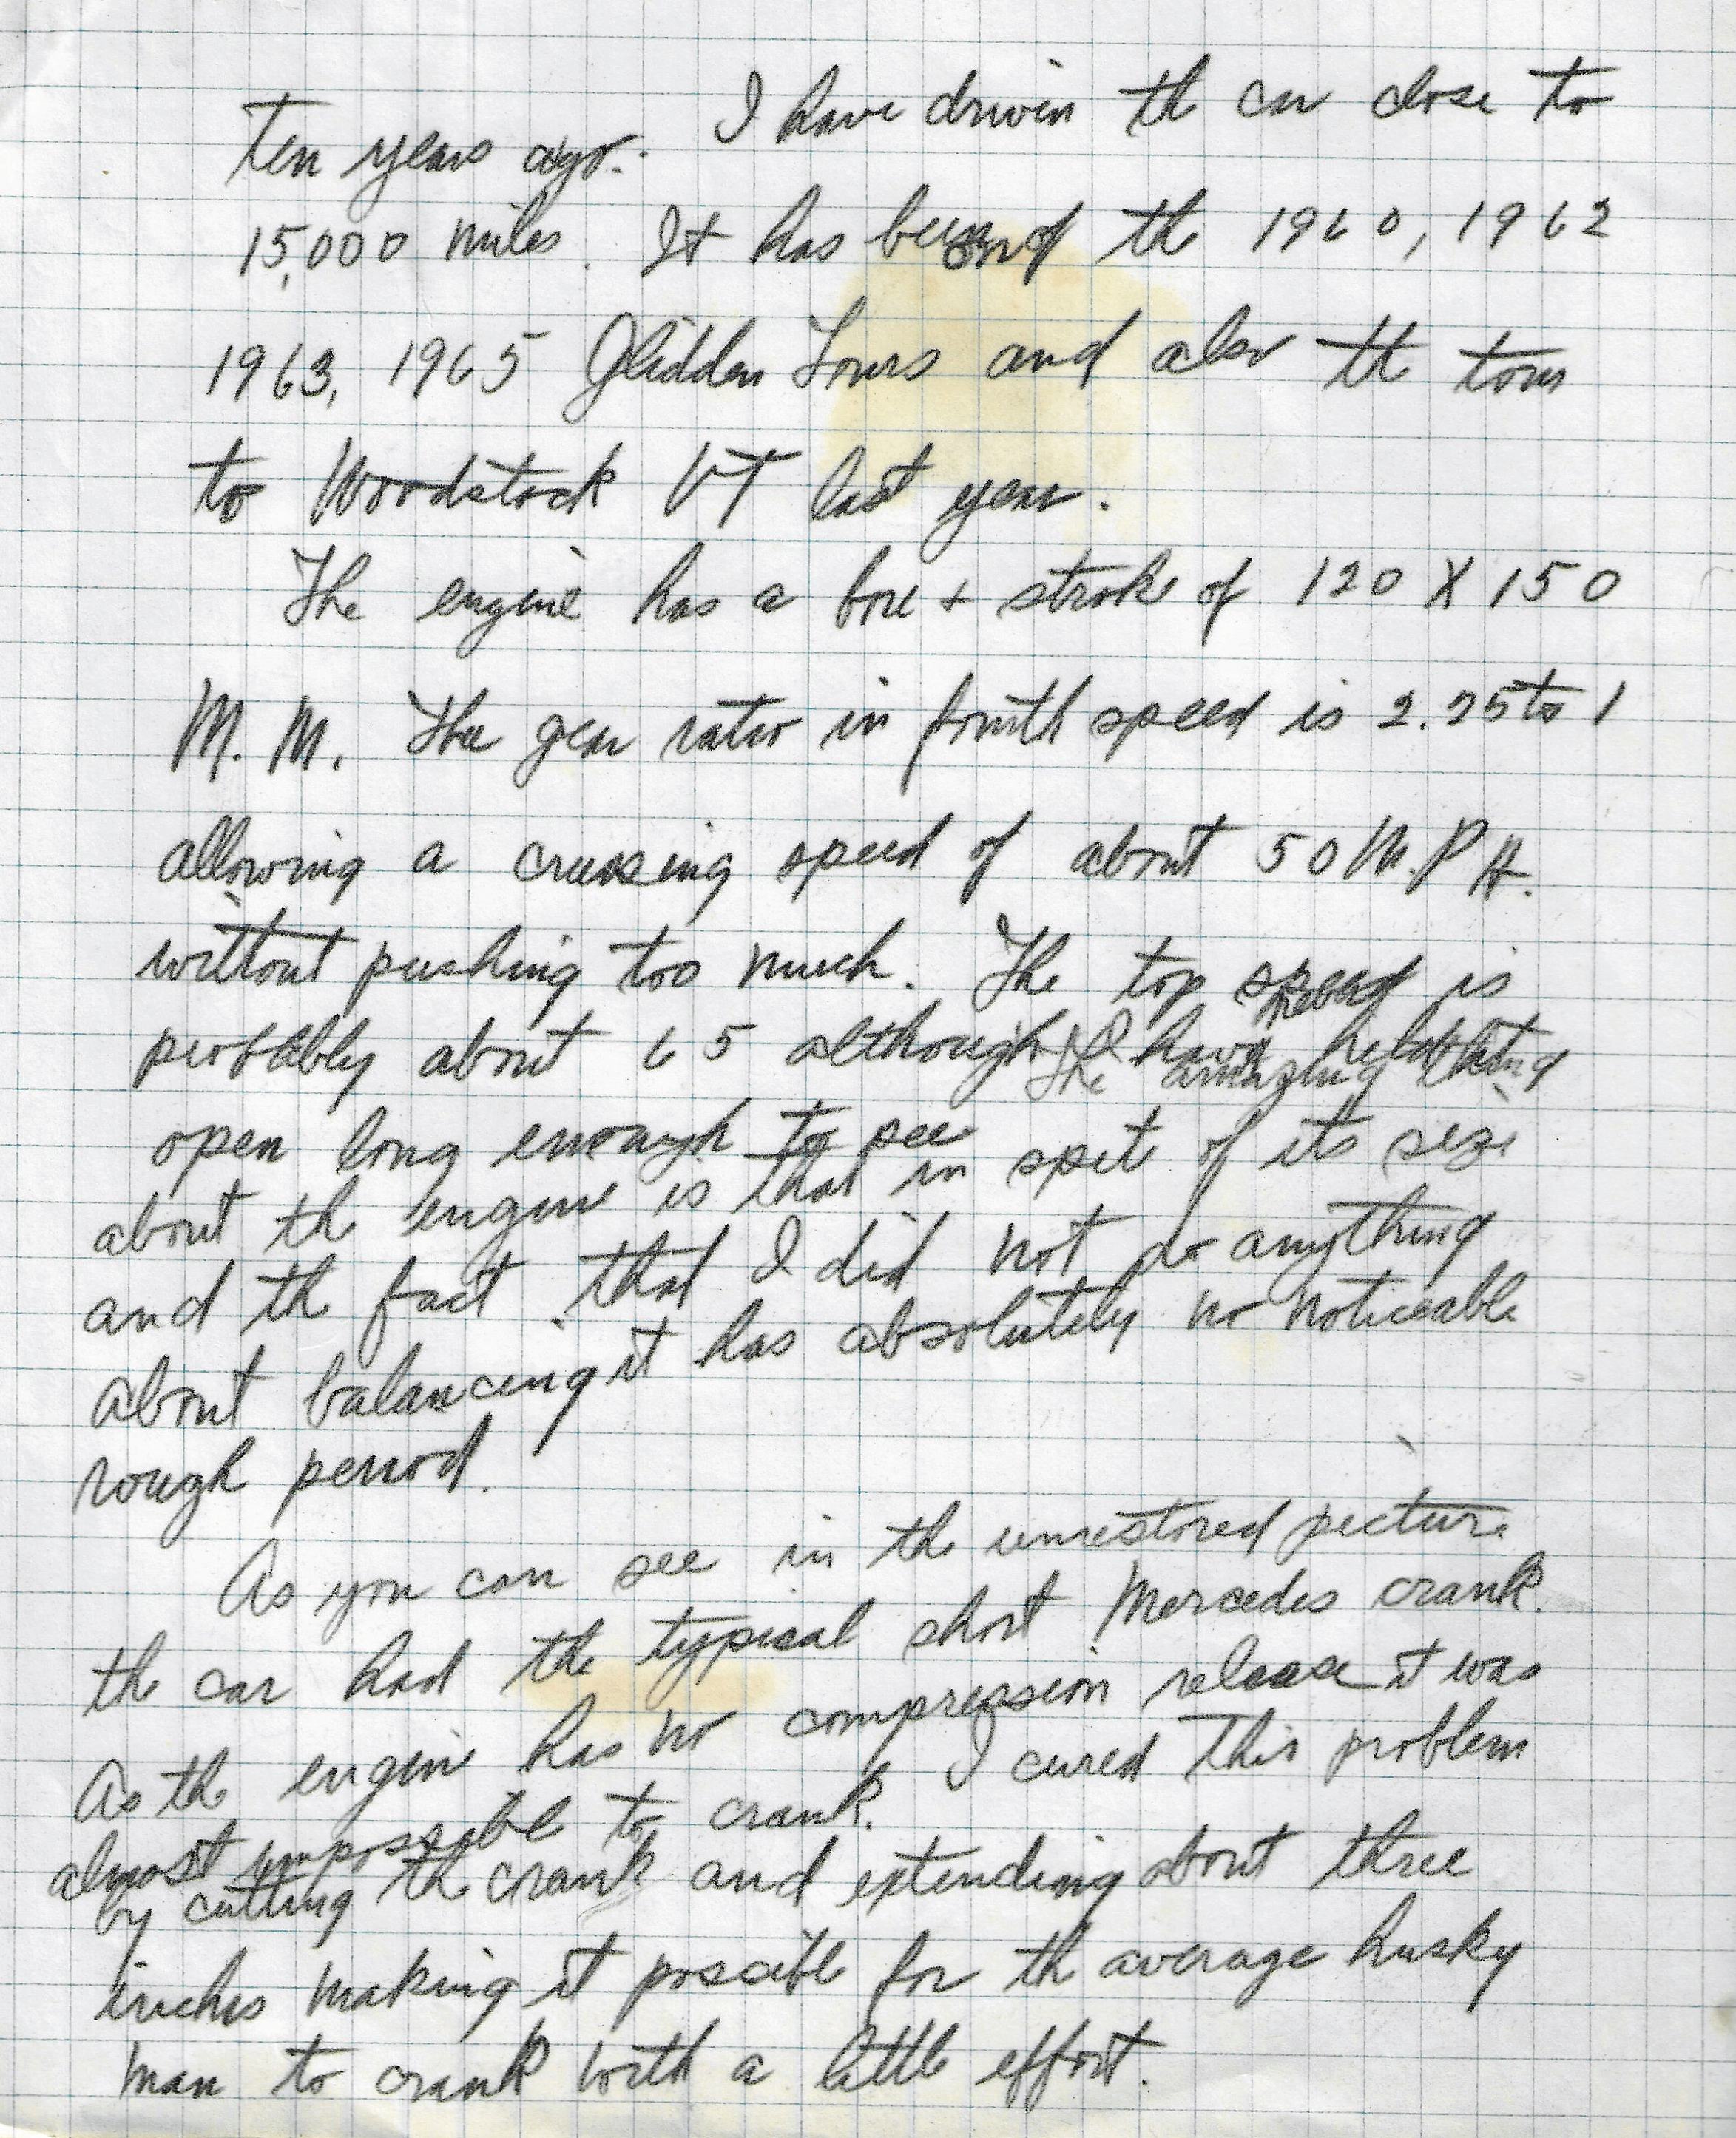 ten years ago. I have driven th car close to
15,000 miles. It has been on th 1960, 1962
1963, 1965 Glidden Tours and also th tour
to Woodstock VT last year.
The engine has a bore + stroke of 120 X 150
M. M. The gear ratio in fourth speed is 2.25 to 1
allowing a cruising speed of about 50 M.P.H.
without pushing too much. The top speed is
probably about 65 although I have held
open long enough to see The amazing thing
about th engine is that in spite of its size
and th fact that I did not do anything
about balancing it has absolutely no noticeable
rough period.
As you can see in th unrestored picture
the car had the typical short Mercedes crank.
As th engine has no compression release it was
almost impossible to crank. I cured this problem
by cutting th crank and extending about three
inches making it possible for th average husky
man to crank with a little effort.